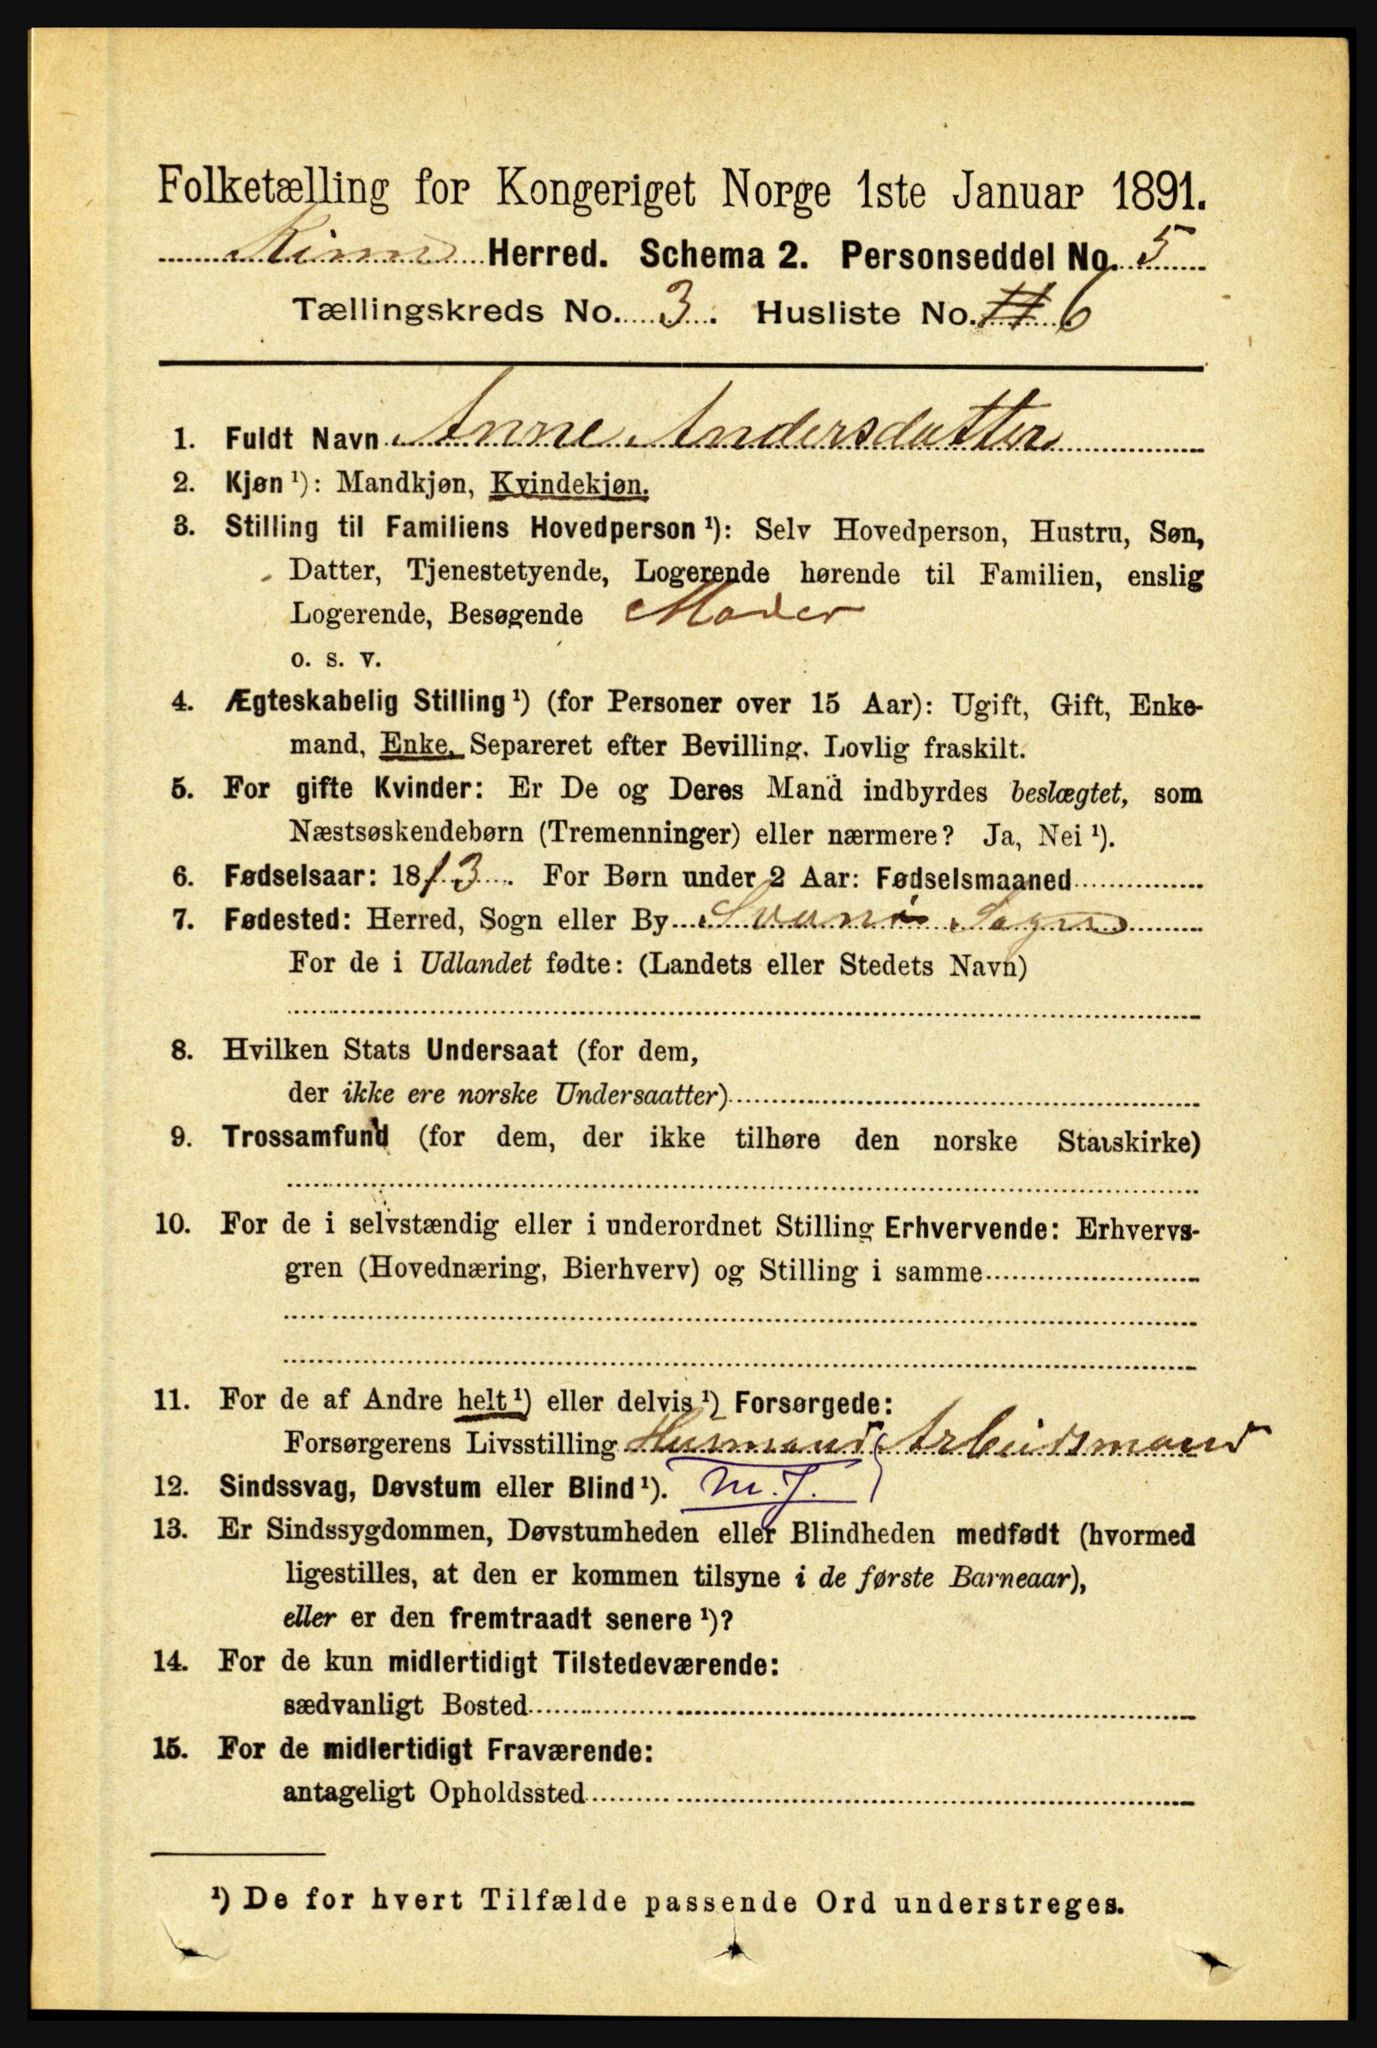 Folketælling for Kongeriget Norge 1ste Januar 1891.
Kinn Herred. Schema 2. Personseddel No. 5
Tællingskreds No. 3. Husliste No. 6
1. Fuldt Navn Anne Andersdatter
2. Kjøn ¹): Mandkjøn, Kvindekjøn.
3. Stilling til Familiens Hovedperson ¹): Selv Hovedperson, Hustru, Søn,
Datter, Tjenestetyende, Logerende hørende til Familien, enslig
Logerende, Besøgende Moder
o. s. v.
4. Ægteskabelig Stilling ¹) (for Personer over 15 Aar): Ugift, Gift, Enke-
mand, Enke, Separeret efter Bevilling. Lovlig fraskilt.
5. For gifte Kvinder: Er De og Deres Mand indbyrdes beslægtet, som
Næstsøskendebørn (Tremenninger) eller nærmere? Ja, Nei ¹).
6. Fødselsaar: 1813. For Børn under 2 Aar: Fødselsmaaned
7. Fødested: Herred, Sogn eller By Svanø Sogn
For de i Udlandet fødte: (Landets eller Stedets Navn)
8. Hvilken Stats Undersaat (for dem,
der ikke ere norske Undersaatter)
9. Trossamfund (for dem, der ikke tilhøre den norske Statskirke)
10. For de i selvstændig eller i underordnet Stilling Erhvervende: Erhvervs-
gren (Hovednæring, Bierhverv) og Stilling i samme
11. For de af Andre helt ¹) eller delvis ¹) Forsørgede:
Forsørgerens Livsstilling Husmand Arbeidsmand
12. Sindssvag, Døvstum eller Blind ¹). m. J.
13. Er Sindssygdommen, Døvstumheden eller Blindheden medfødt (hvormed
ligestilles, at den er kommen tilsyne i de første Barneaar),
eller er den fremtraadt senere ¹)?
14. For de kun midlertidigt Tilstedeværende:
sædvanligt Bosted
15. For de midlertidigt Fraværende:
antageligt Opholdssted
¹) De for hvert Tilfælde passende Ord understreges.